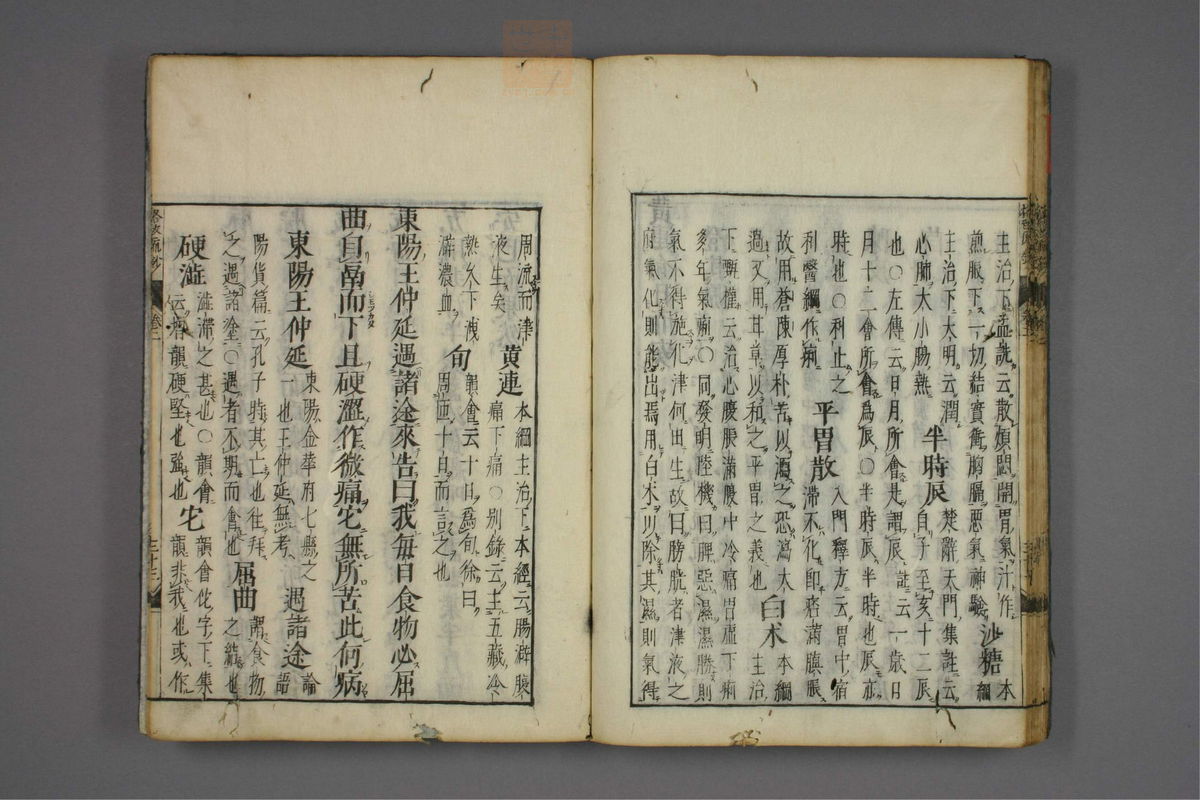 主治下孟詵云散煩悶開胃氣汁作 沙糖 本綱
煎服下一切結實衝胸膈惡氣神驗
主治下大明云潤 半時辰 楚辭天門集註云
心肺大小腸熱 自子至亥十二辰
也〇左傳云日月所會是謂辰註云一歲日
月十二會所會爲辰〇半時辰半時也辰亦
時也〇利止之 平胃散 入門釋方云胃中宿
利醫綱作痢 滯不化即痞滿䐜脹
故用蒼陳厚朴苦以瀉之恐瀉太 白朮 本綱
過又用甘草以和之平胃之義也 主治
下甄權云治心腹脹滿腹中冷痛胃虛下痢
多年氣痢〇同發明陸機曰脾惡濕濕勝則
氣不得施化津何出生故曰膀胱者津液之
府氣化則能出焉用白朮以除其濕則氣得
周流而津 黃連 本綱主治下本經云腸澼腹
液生矣 痛下痢〇別錄云主五藏冷
熱久下洩 旬 韻會云十日爲旬徐曰
澼濃血 周匝十日而言之也
東陽王仲延遇諸途來告曰我每日食物必屈
曲自膈而下且硬澀作微痛它無所苦此何病
東陽王仲延 東陽金華府七縣之 遇諸途 論語
一也王仲延無考
陽貨篇云孔子時其亡也往拜 屈曲 謂食物
之遇諸塗〇遇者不期而會也 之結也
硬澁 澁滯之甚也〇韻會 它 韻會佗字下集
云有韻硬堅也強也 韻非我也或作